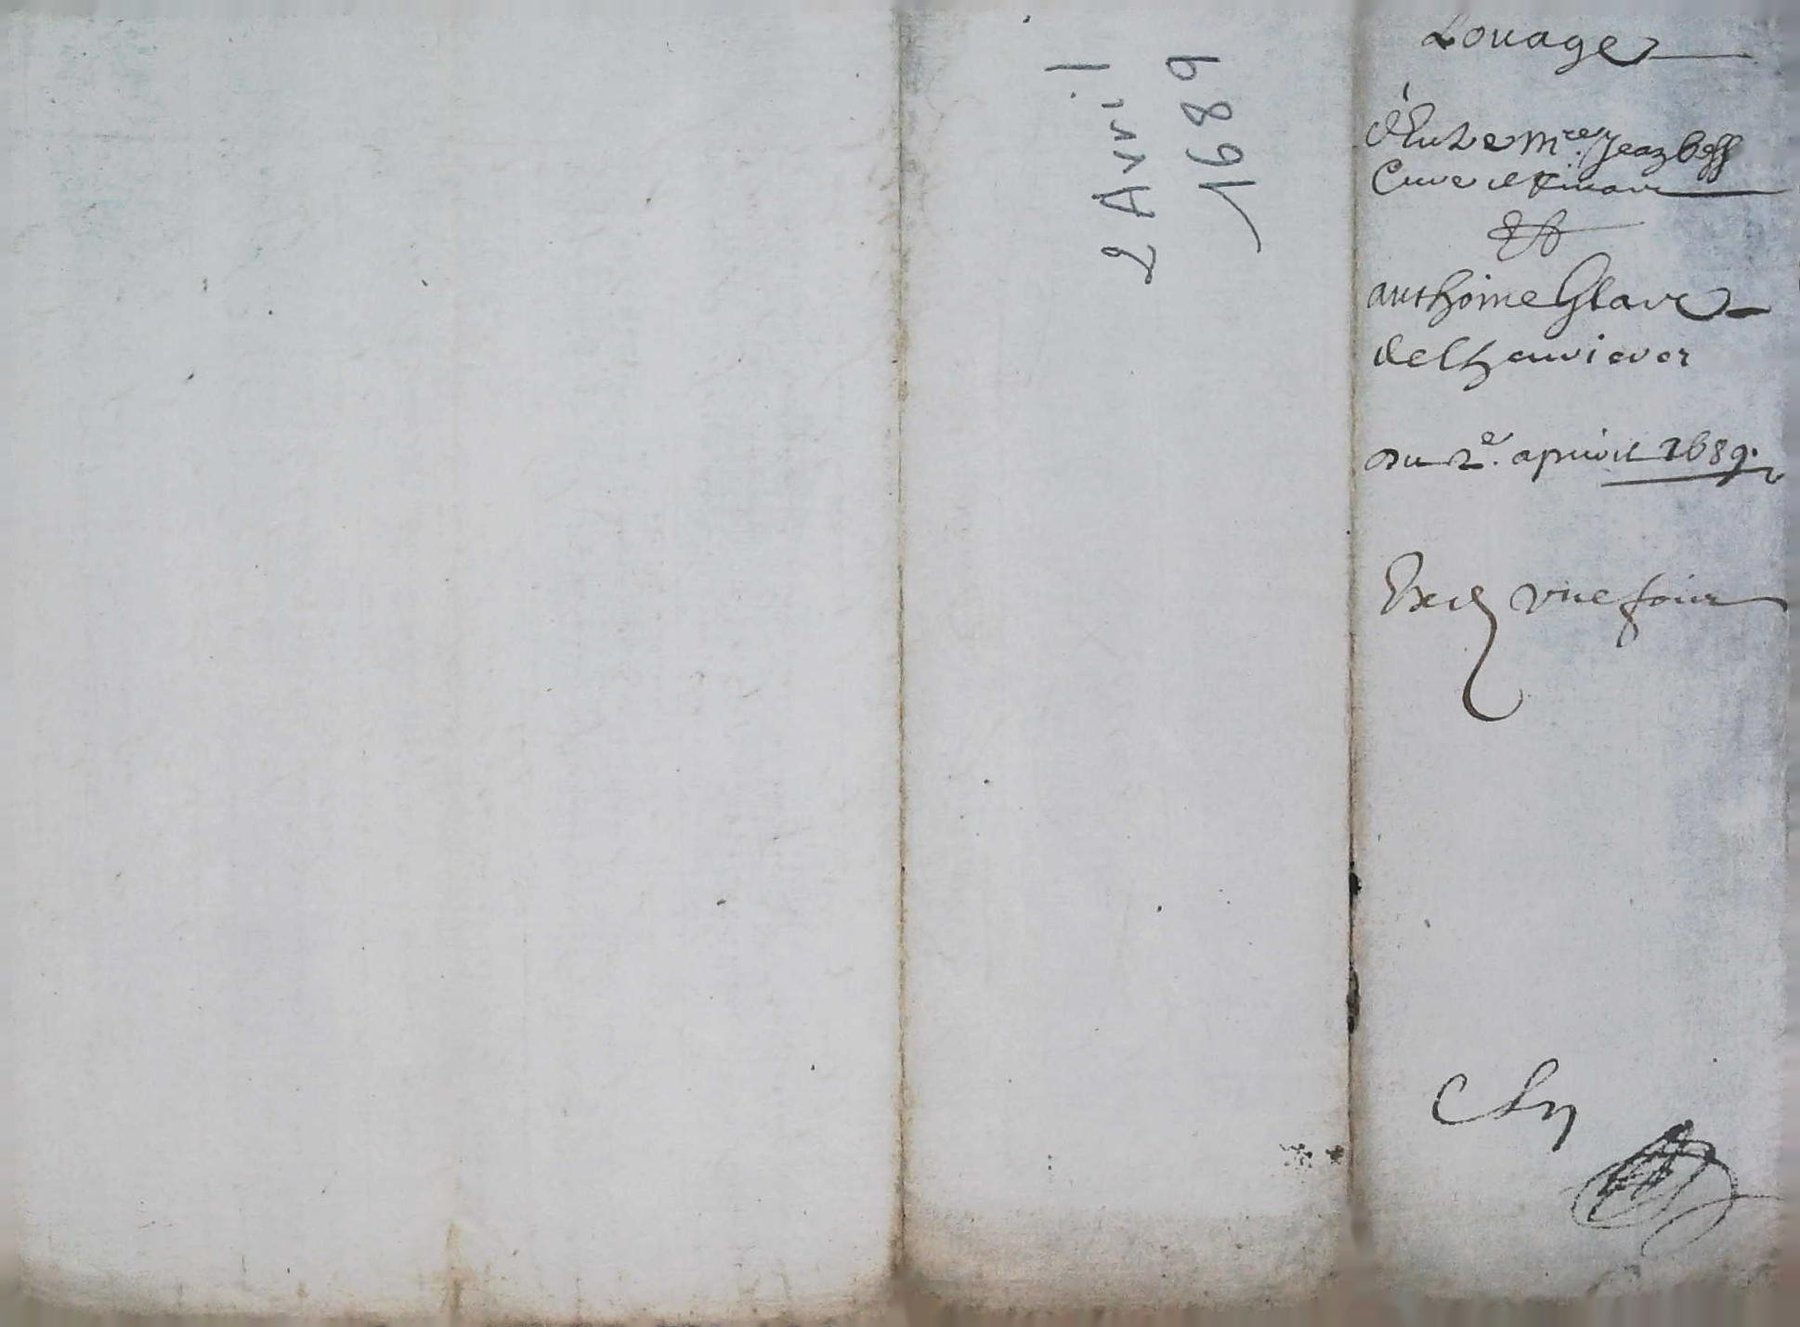 2 Avril
1689
Louage
d'Entre Mre Jean
Cure de
Et
anthoine Glave
du 2e. apvril 1689.
Exd une fois